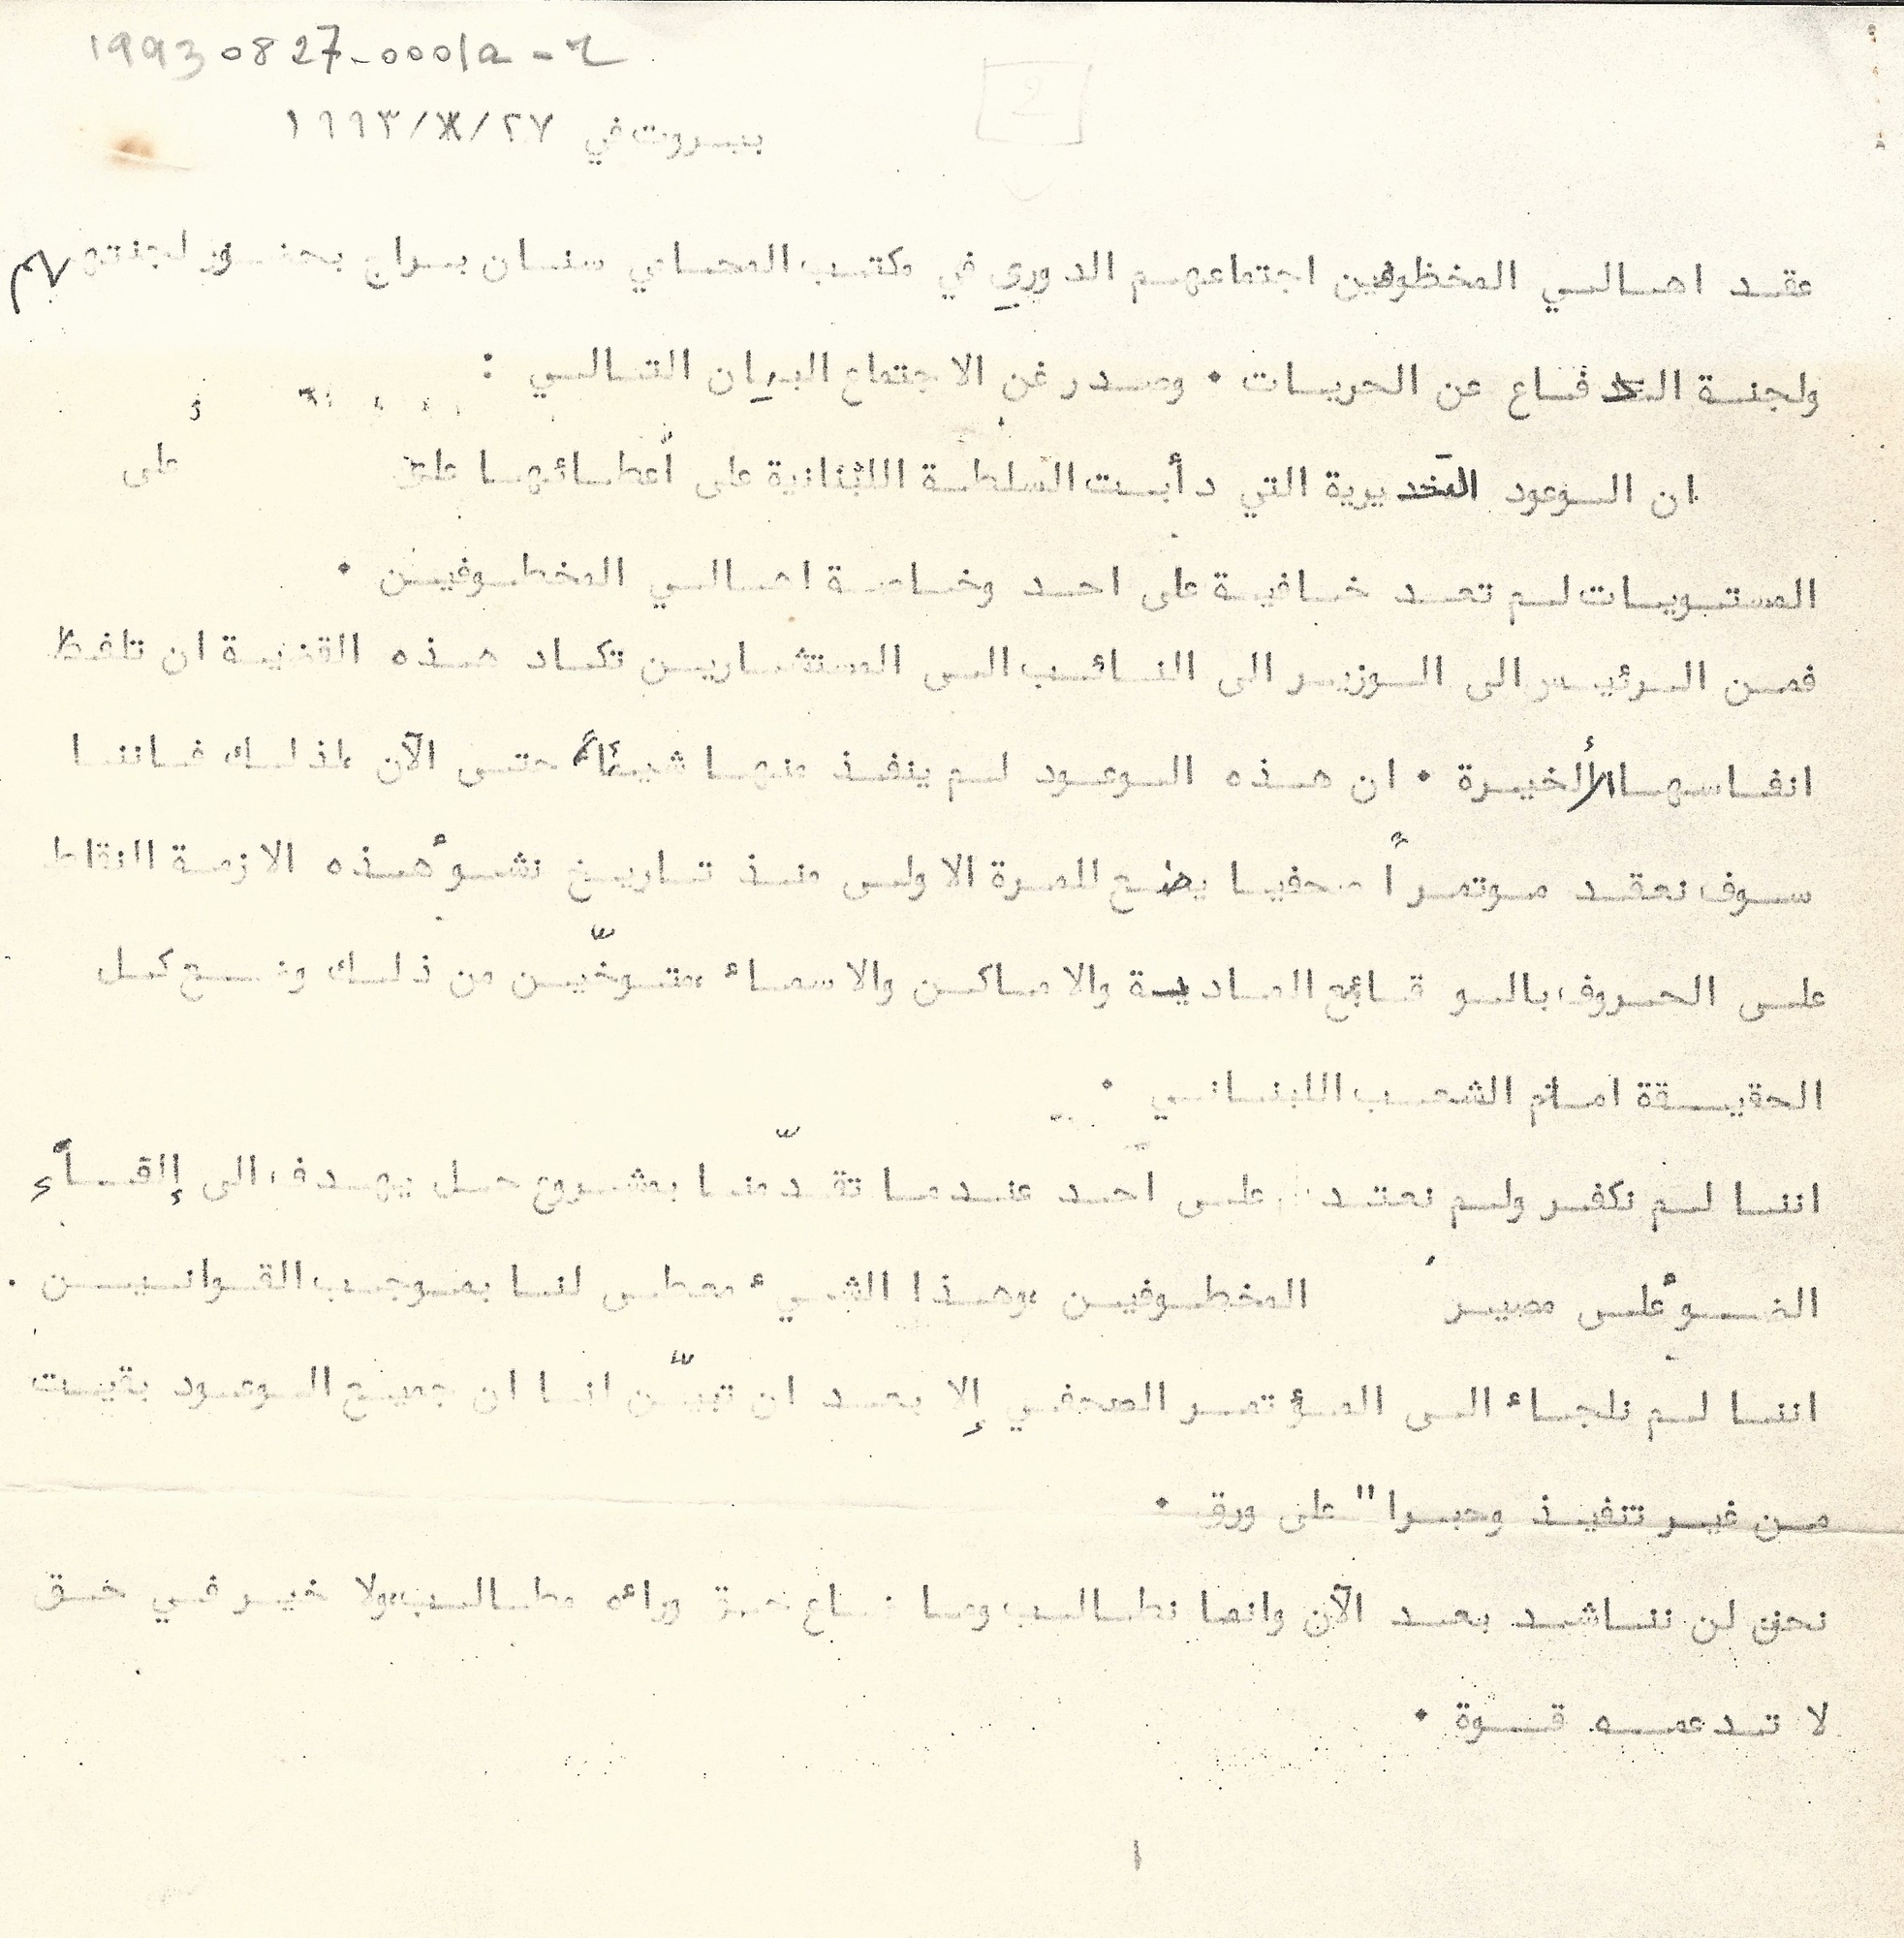 19930827-0001a-2
2
بيروت في ٢٧/٨/١٩٩٣
عقد اهالي المخطوفين اجتماعهم الدوري في مكتب المحامي سنان براج بحضور لجنتهم
ولجنة الدفاع عن الحريات ٠ وصدر عن الاجتماع البيان التالي :
ان الوعود التخديرية التي دأبت السلطة اللبنانية على أعطائها على
المستويات لم تعد خافية على احد وخاصة اهالي المخطوفين ٠
فمن الرئيس الى الوزير الى النائب الى المستشارين تكاد هذه القضية ان تلفظ
انفاسها الأخيرة ٠ ان هذه الوعود لم ينفذ منها شيئاً حتى الآن ،لذلك فاننا
سوف نعقد موتمراً صحفيا يضع للمرة الاولى منذ تاريخ نشوء هذه الازمة النقاط
على الحروف بالوقائع المادية والاماكن والاسماء ،متوخّين من ذلك وضع كل
الحقيقة امام الشعب اللبناني ٠
اننا لم نكفر ولم نعتد على أحد عندما تقدّمنا بمشروع حل يهدف الى إلقاء
الضوء على مصير المخطوفين ،وهذا الشيء معطى لنا بموجب القوانين .
اننا لم نلجاء الى المؤتمر الصحفي إلا بعد ان تبيّن لنا ان جميع الوعود بقيت
من غير تنفيذ وحبرا" على ورق ٠
نحن لن نناشد بعد الآن وانما نطالب وما ضاع حق وراءه مطالب،ولا خير في حق
لا تدعمه قوة ٠